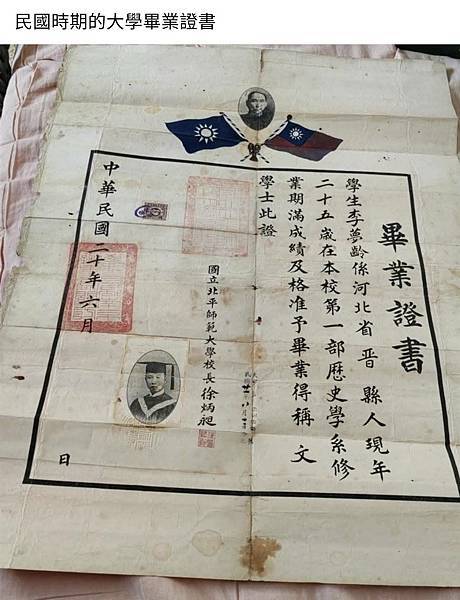 民國時期的大學畢業證書
畢業證書
學生李夢齡係河北省晋縣人現年
二十五歲在本校第一部歷史學系修
業期滿成績及格准予畢業得稱文
學士此證
國立北平師範大學校長徐炳昶
中華民國二十年六月
日